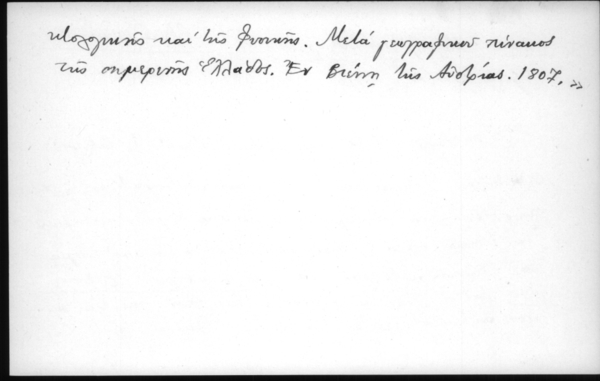 κτολογικῆς καὶ τῆς φυσικῆς. Μετὰ γεωγραφικοῦ πίνακος
τῆς σημερινῆς Ἑλλάδος. Ἐν Βιέννῃ τῆς Αὐστρίας. 1807.»